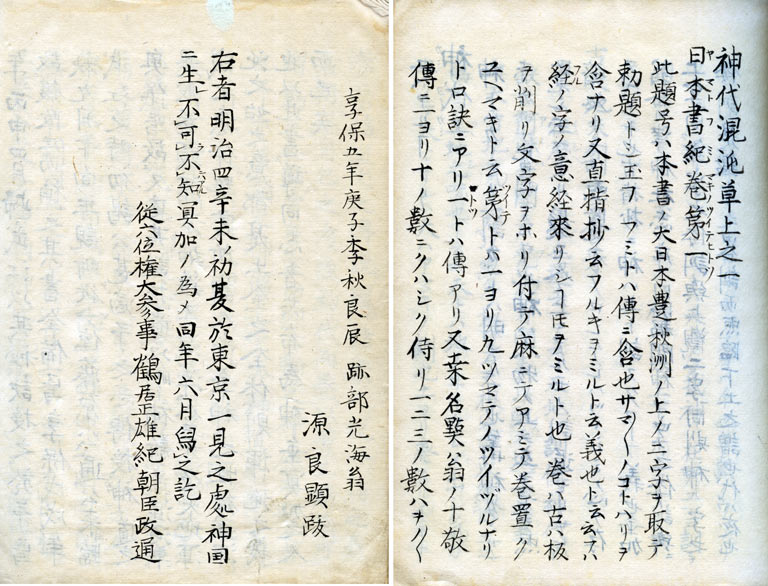 神代混沌草上之一
日本書紀巻第一
ヤマトフミマキノツイテヒトツ
此題号ハ本書ノ大日本豊秋洲ノ上ノ二字ヲ取テ
勅題トシ玉フフミトハ傳ニ含也サマ〱ノコトハリヲ
含ナリ又直指抄云フルキヲミルト云義也ト云フハ
経ノ字ノ意経来リシヿヲミルト也巻ハ古ハ板
フル
ヲ削リ文字ヲホリ付テ麻ニテアミテ巻置ク
ユヘマキト云第トハ一ヨリ九ツマテノツイヅルナリ
ツイテ
トロ訣ニアリ一トハ傳アリ又桑名黙翁ノ十敬
トツ
傳ニ一ヨリ十ノ数ニクハシク侍リ一二三ノ数ハヲノ〱
享保五年庚子季秋良辰 跡部光海翁
源良顕跋
右者明治四辛未ノ初夏於東京一見之處神国
ニ生レ不可不知冥加ノ為メ同年六月写之訖
従六位権大参事鶴居正雄紀朝臣政通